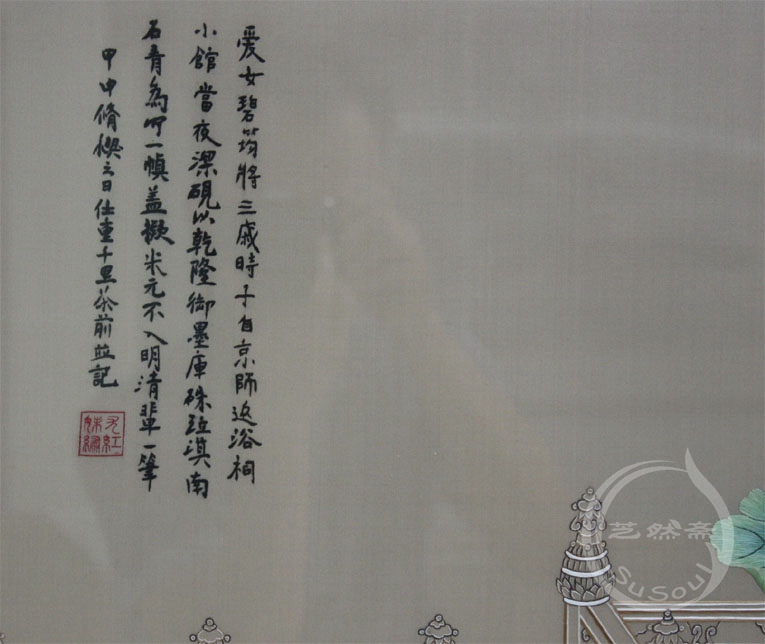 愛女碧筠將三歲時予自京師返浴桐
小館當夜潔硯以乾隆御墨庫硃竝滇南
石青為一幀蓋擬米元不入明清輩一筆
甲申脩禊之日仕重千里茶前竝記
芝然斋
SuSoul